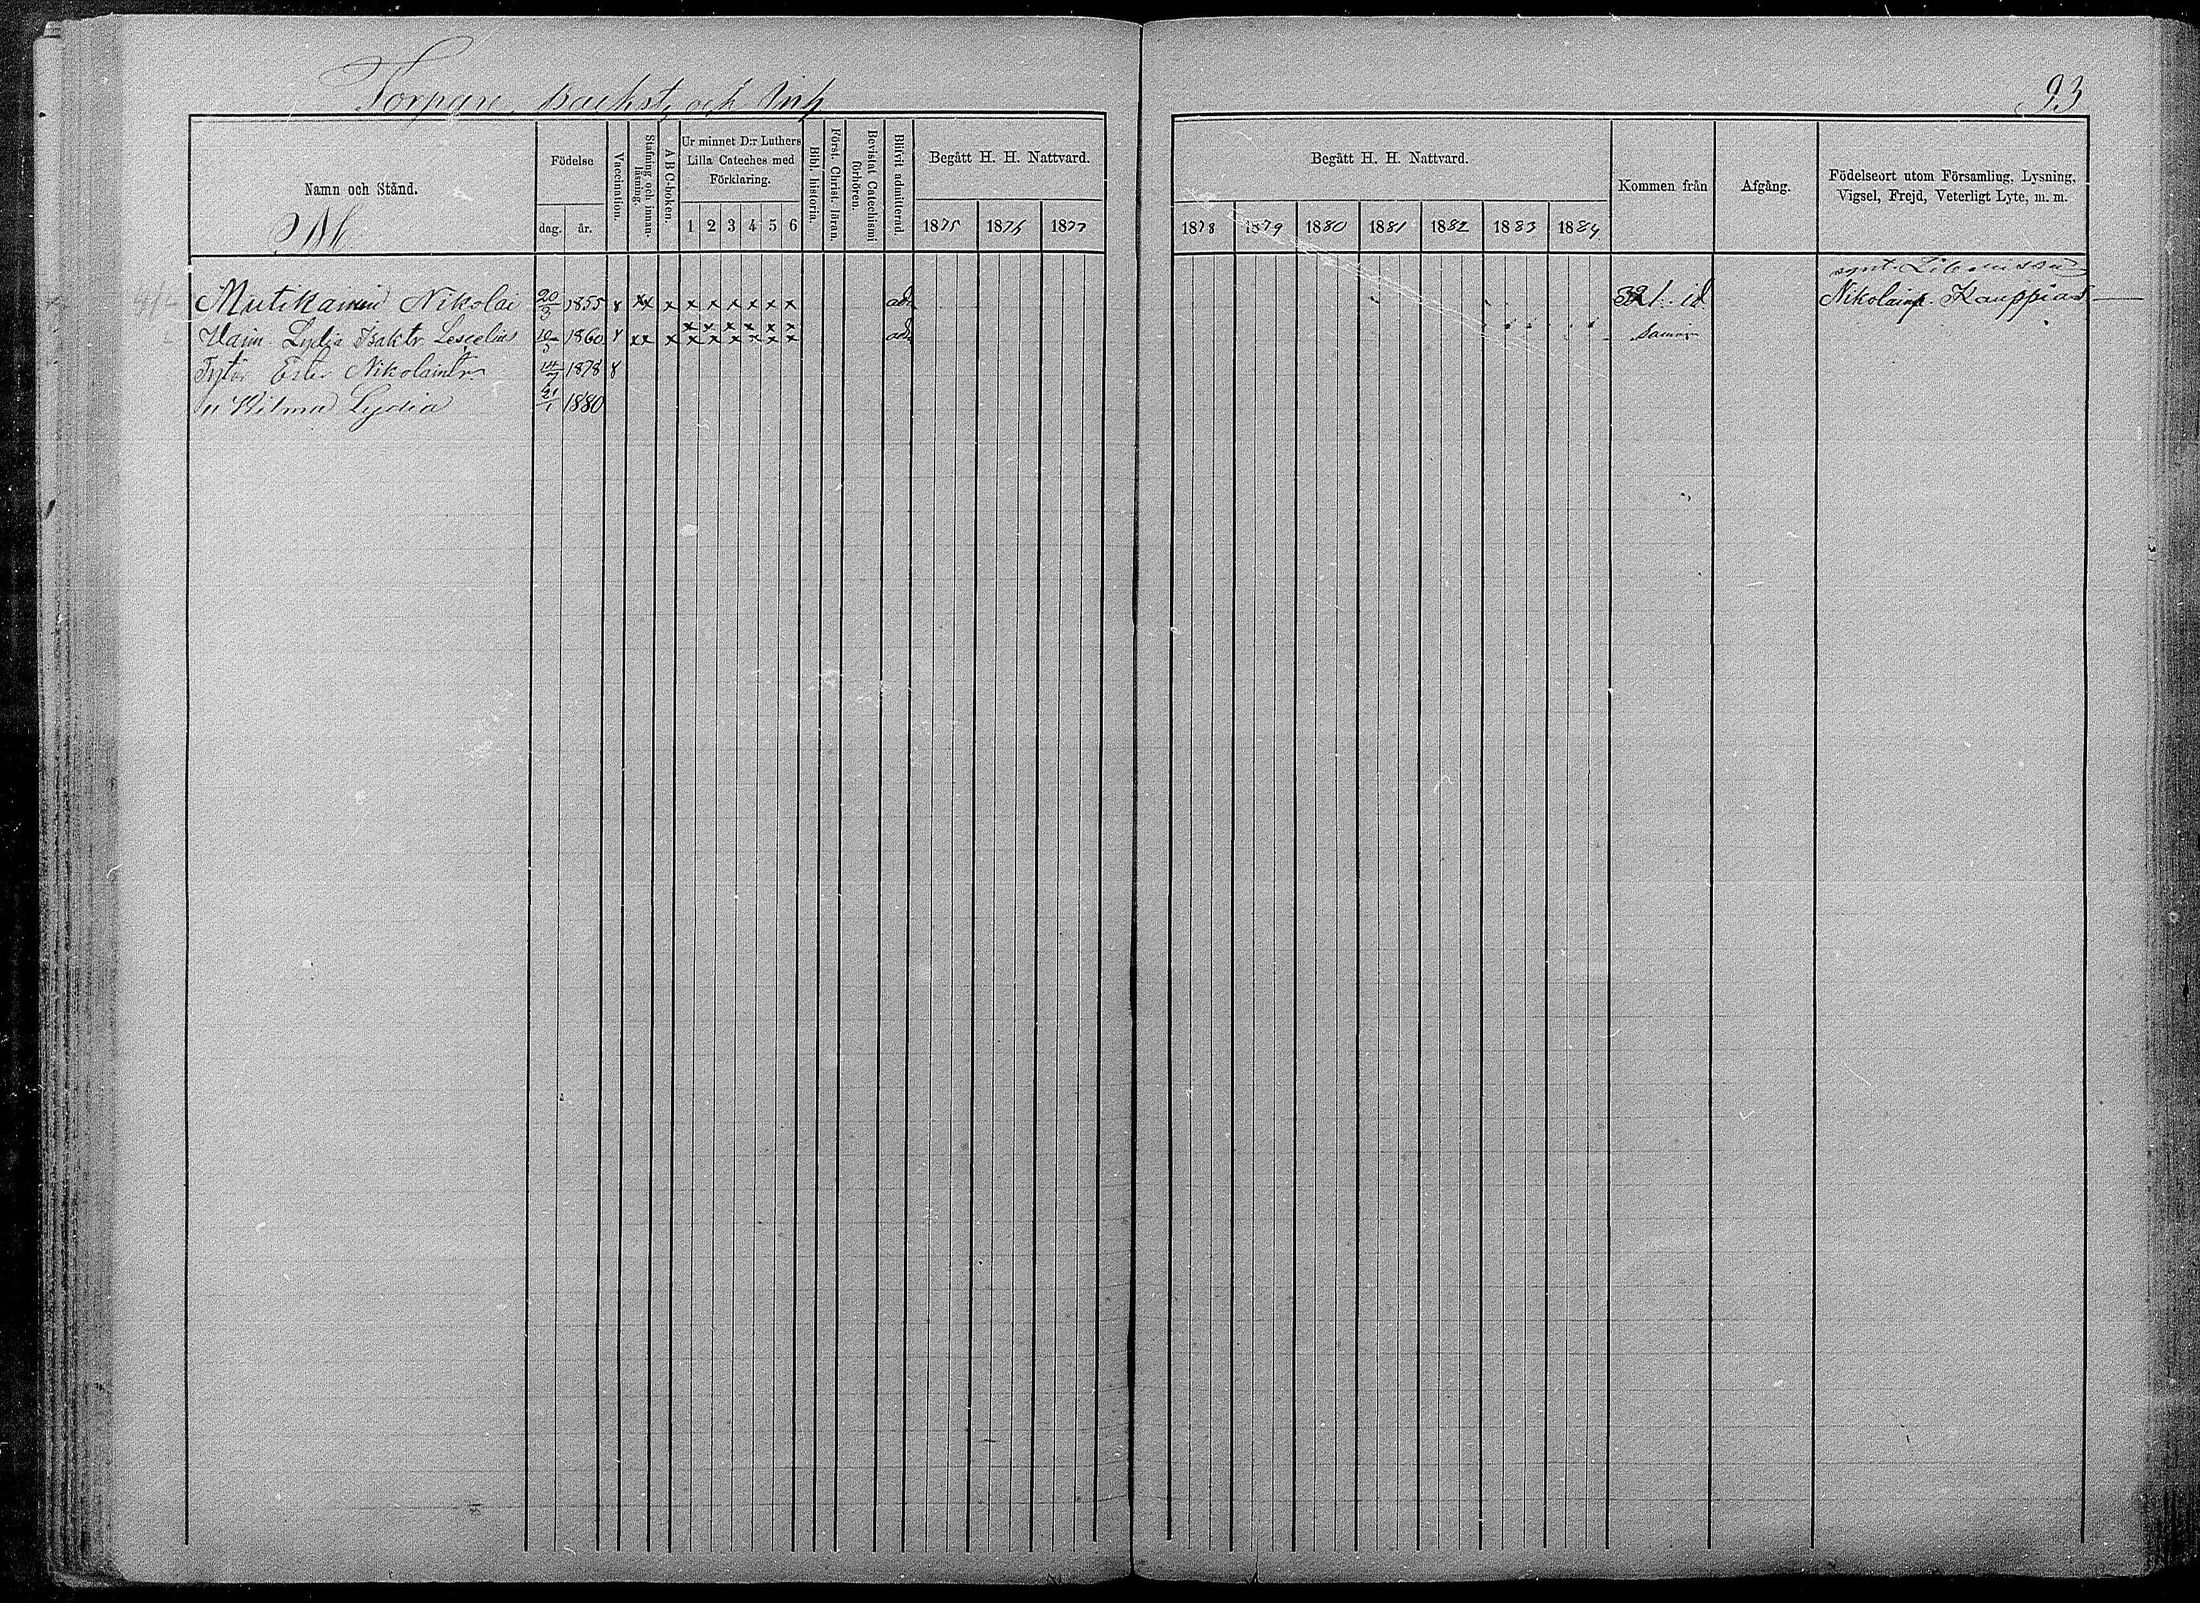 Torpare, backst, och Inh
93
Namn och Stånd.
Födelse
dag.
år.
Vaccination.
Stafning och innan-
läsning.
A B C-boken.
Ur minnet D:r Luthers
Lilla Cateches med
Förklaring.
1 2 3 4 5 6
Bibl. historia.
Först. Christ. läran.
Bevistat Catechismi
förhören.
Blifvit admitterad.
Begått H. H. Nattvard.
1875 1876 1877
Begått H. H. Nattvard.
1878 1879 1880 1881 1882 1883 1884
Kommen från
Afgång.
Födelseort utom Församling, Lysning,
Vigsel, Frejd, Veterligt Lyte, m. m.
Mutikainen Nikolai 20/3 1855 x xx x x x x x x x adm id Nikolainp. Kauppias
x x x x x x
Lydia Isaktr 1860 x xx x x x x x x x adm samma
Tytär Ester Nikolaintr 1878 x
" Wilma Lydia 21/1 1880